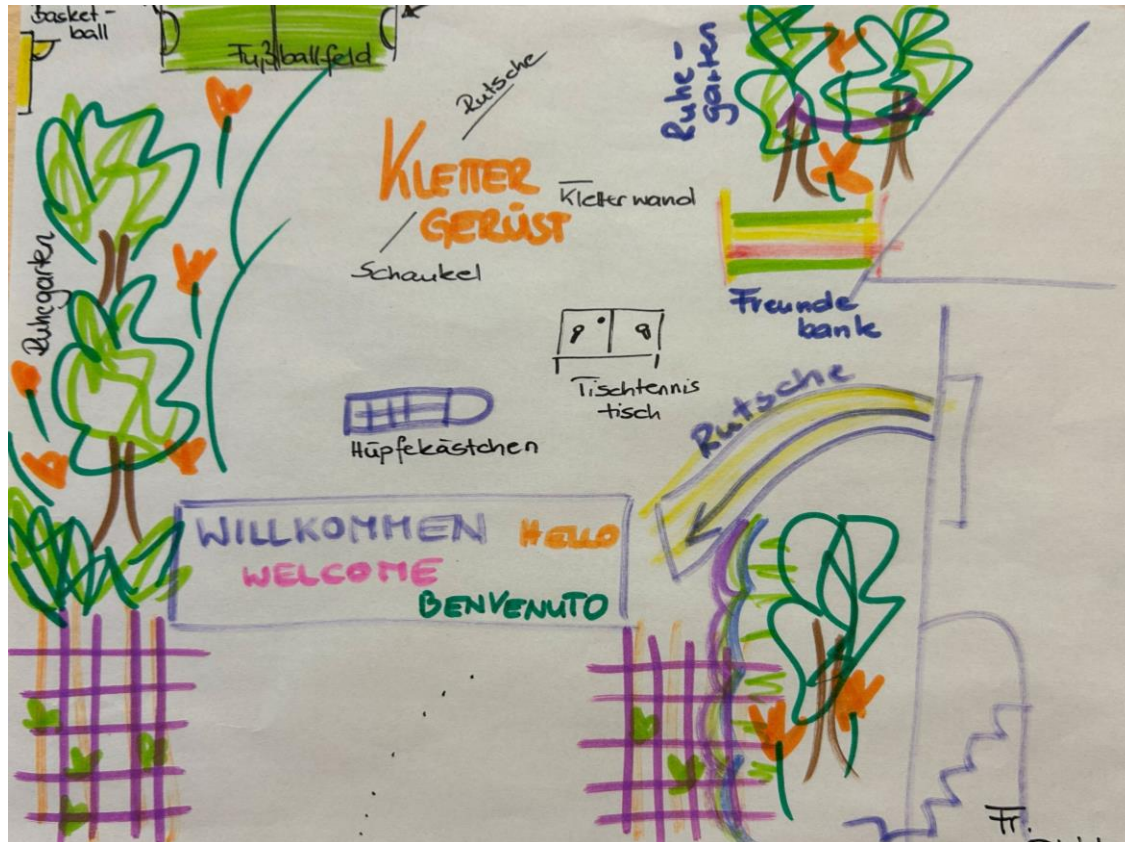 Basket-
ball
Fußballfeld
Rutsche
KLETTER
GERÜST
Kletterwand
Schaukel
Ruhe-
garten
Ruhegarten
Freunde
bank
Tischtennis
tisch
Hüpfekästchen
Rutsche
WILLKOMMEN HELLO
WELCOME
BENVENUTO
Fr.